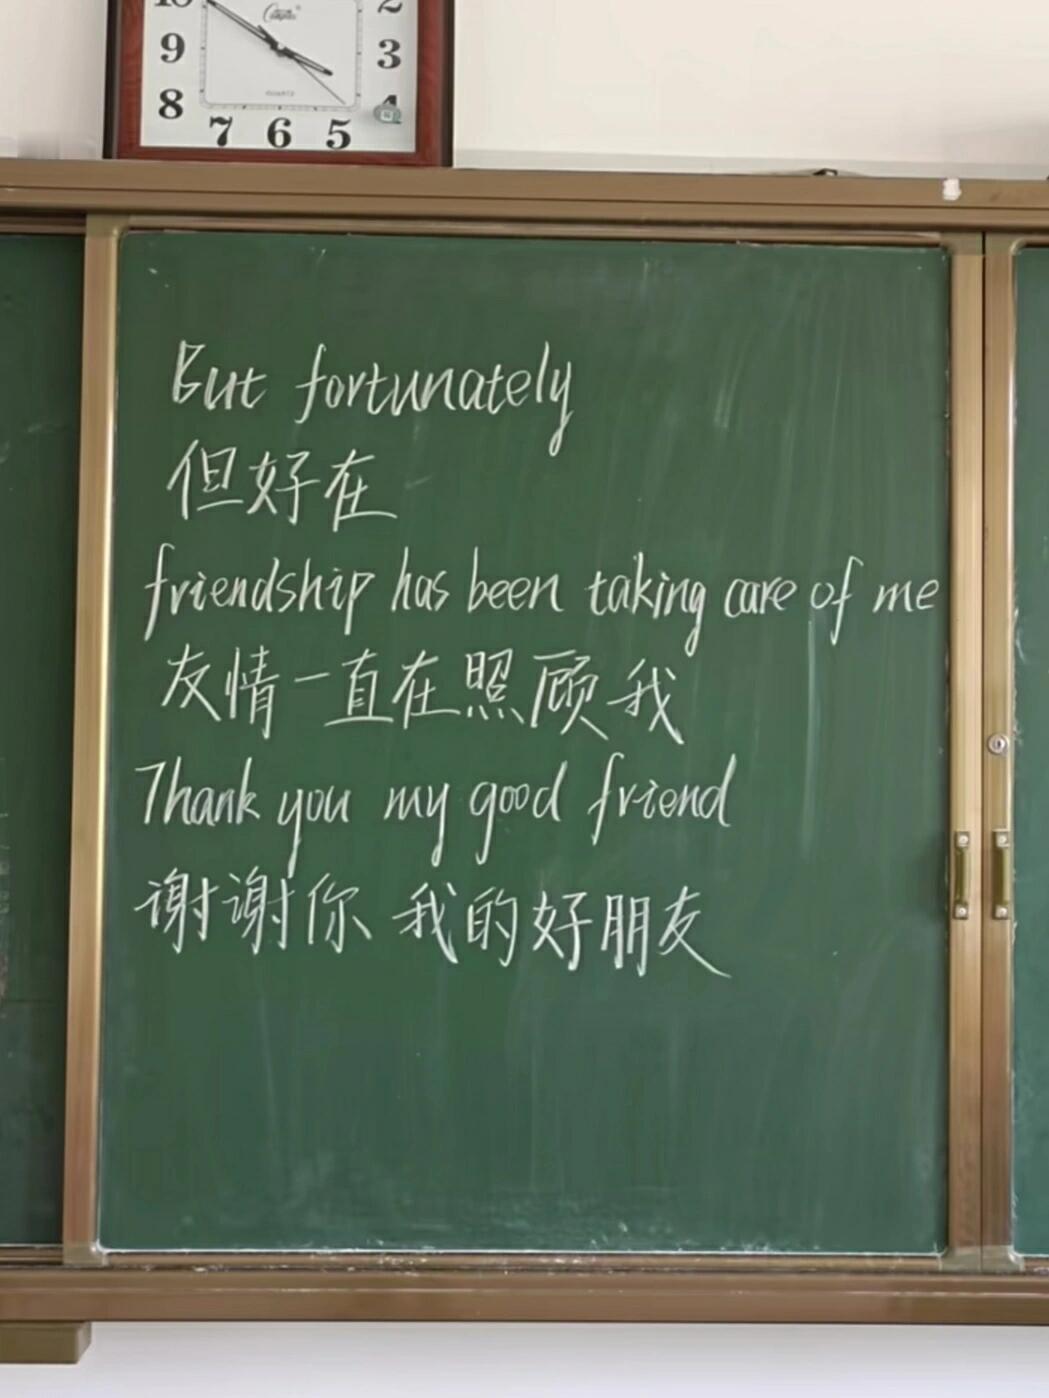 10 2
9 3
8 4
7 6 5
QUARTZ
But fortunately
但好在
friendship has been taking care of me
友情一直在照顾我
Thank you my good friend
谢谢你 我的好朋友